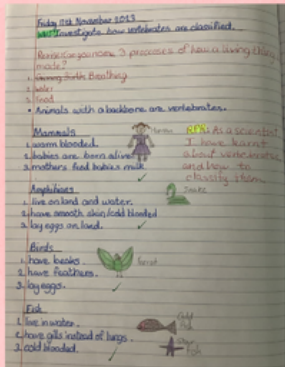 Friday 11th November 2023
Investigate how vertebrates are classified.
Remember you know 3 processes of how a living thing
made?
1. Giving Birth Breathing
2. water
3. food
• Animals with a backbone are vertebrates.
Mammals
1. warm blooded.
2. babies are born alive
3. mothers feed babies milk
human
RPR: As a scientist
I have learnt
about vertebrates
and how to
classify them.
Amphibians
1. live on land and water.
2. have smooth skin/cold blooded
3. lay eggs on land.
Snake
Birds
1. have beaks.
2. have feathers.
3. lay eggs.
Parrot
Fish
1. live in water.
2. have gills instead of lungs.
3. cold blooded.
Fish
Fish